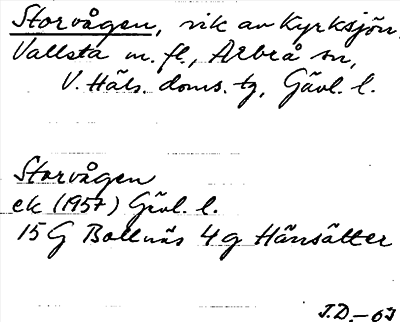 Storvågen, vik av Kyrksjön,
Vallsta m. fl., Arbrå sn,
V. Häls. doms. tg, Gävl. l.
Storvågen
ek (1957) Gävl. l.
15 G Bollnäs 4 g Hänsätter
J.D.-63